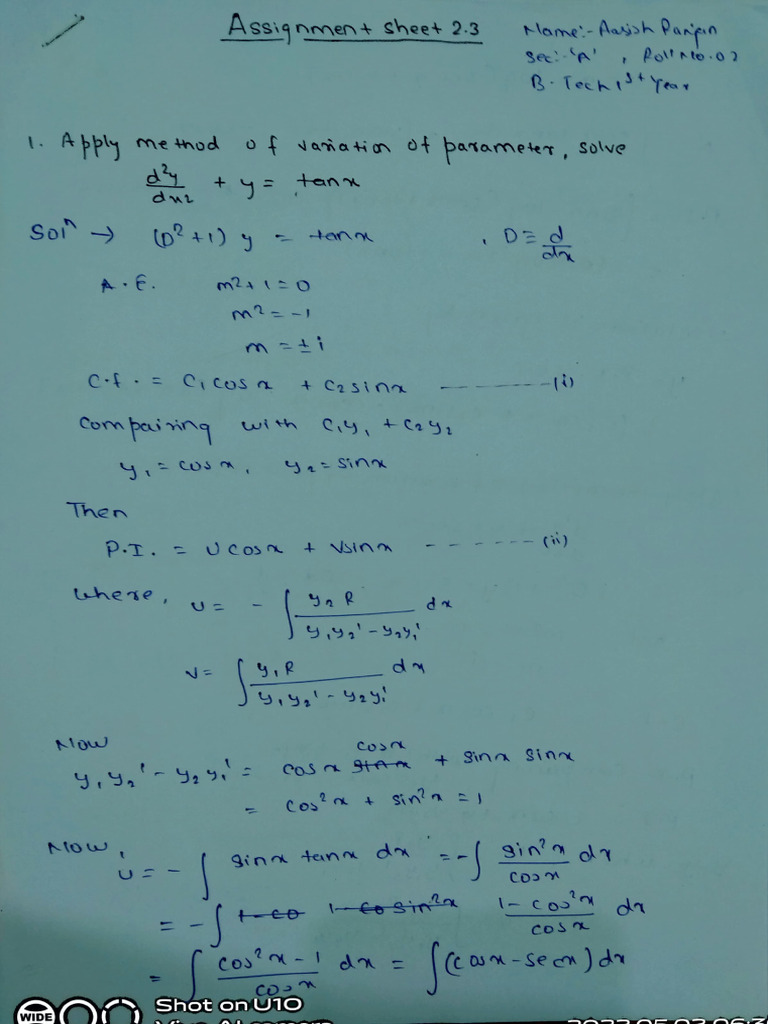 Assignment sheet 2.3
Name:- Aasish Ranjan
Sec:- 'A' , Roll No. 02
B. Tech 1st Year
1. Apply method of variation of parameter, solve
d²y/dx² + y = tanx
Solⁿ → (D²+1) y = tanx , D ≡ d/dx
A.E. m²+1=0
m² = -1
m = ±i
C.f. = C₁cosx + C₂sinx ----------(i)
Compairing with C₁y₁ + C₂y₂
y₁ = cosx, y₂ = sinx
Then
P.I. = Ucosx + Vsinx -------(ii)
Where, U = - ∫ y₂R/(y₁y₂' - y₂y₁') dx
V = ∫ y₁R/(y₁y₂' - y₂y₁') dx
Now
y₁y₂' - y₂y₁' = cosx cosx + sinx sinx
= cos²x + sin²x = 1
Now,
U = - ∫ sinx tanx dx = - ∫ sin²x/cosx dx
= - ∫ (1-cos²x)/cosx dx
= ∫ (cos²x - 1)/cosx dx = ∫(cosx - secx) dx
WIDE
Shot on U10